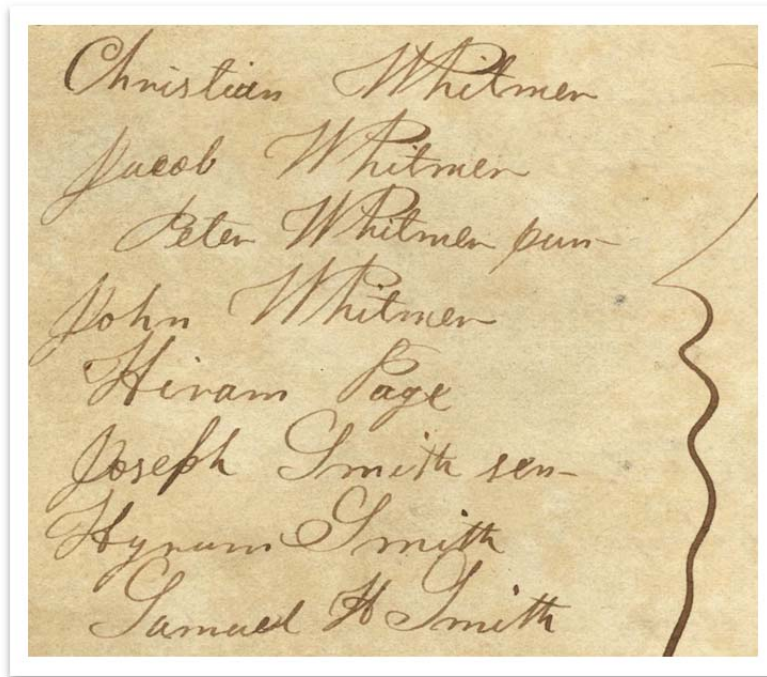 Christian Whitmer
Jacob Whitmer
Peter Whitmer jun–
John Whitmer
Hiram Page
Joseph Smith sen–
Hyrum Smith
Samuel H Smith